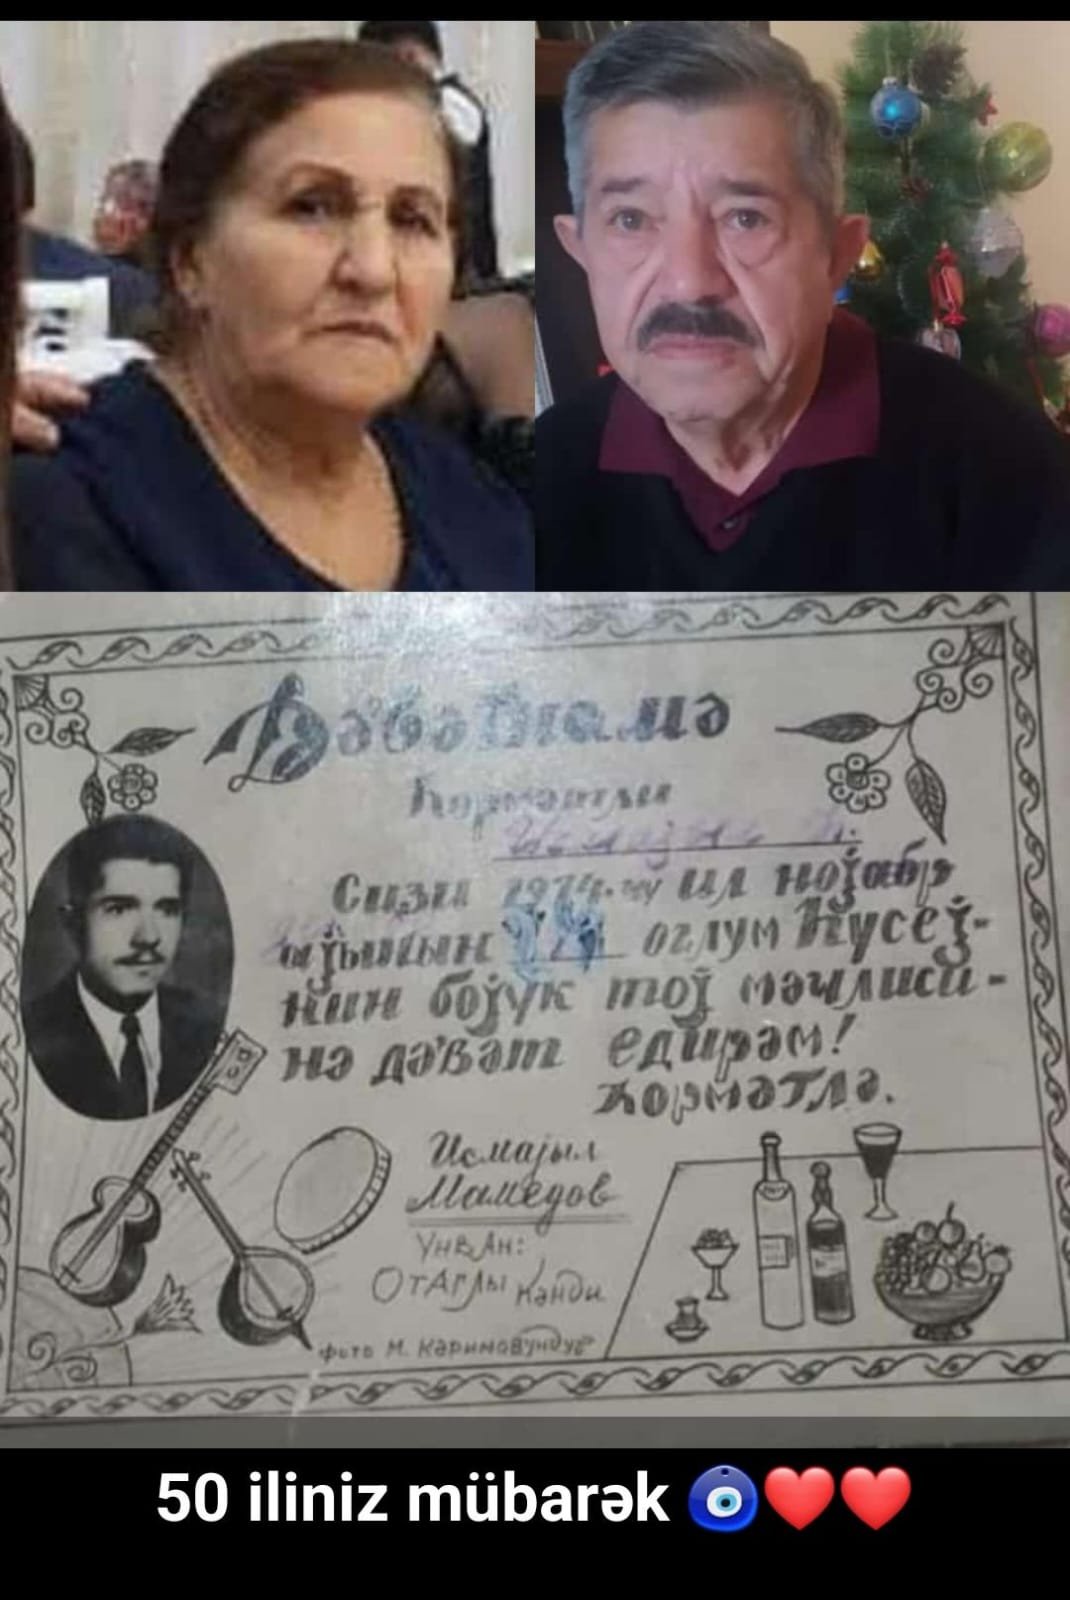 Дә'вәтнамә
Һөрмәтли
Исмајыл
Сизи 1974-ҹү ил нојабр
ајынын 24 оғлум Һүсеј-
нин бөјүк тој мәҹлиси-
нә дә'вәт едирәм!
Һөрмәтлә.
Исмајыл
Мамедов
Унван:
Отаглы кәнди
Фото М. Кәримовундур
50 iliniz mübarək 🧿❤️❤️